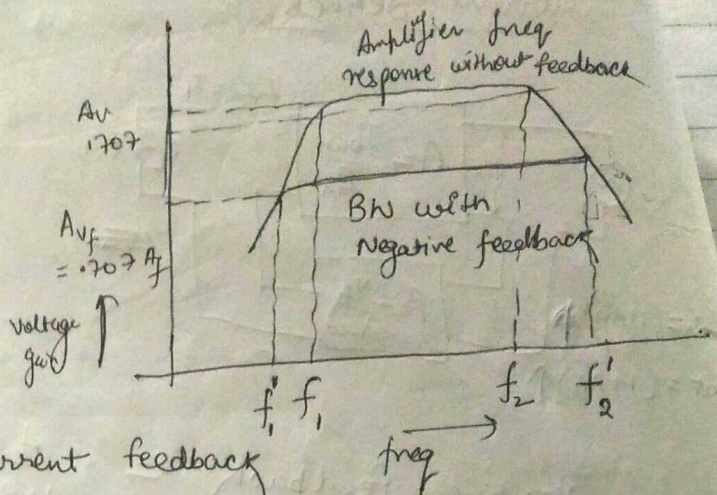 Amplifier freq
response without feedback
Av
.707
BW with
Negative feedback
Avf
= .707 Af
voltage
f₁' f₁ f₂ f₂'
freq
rrent feedback